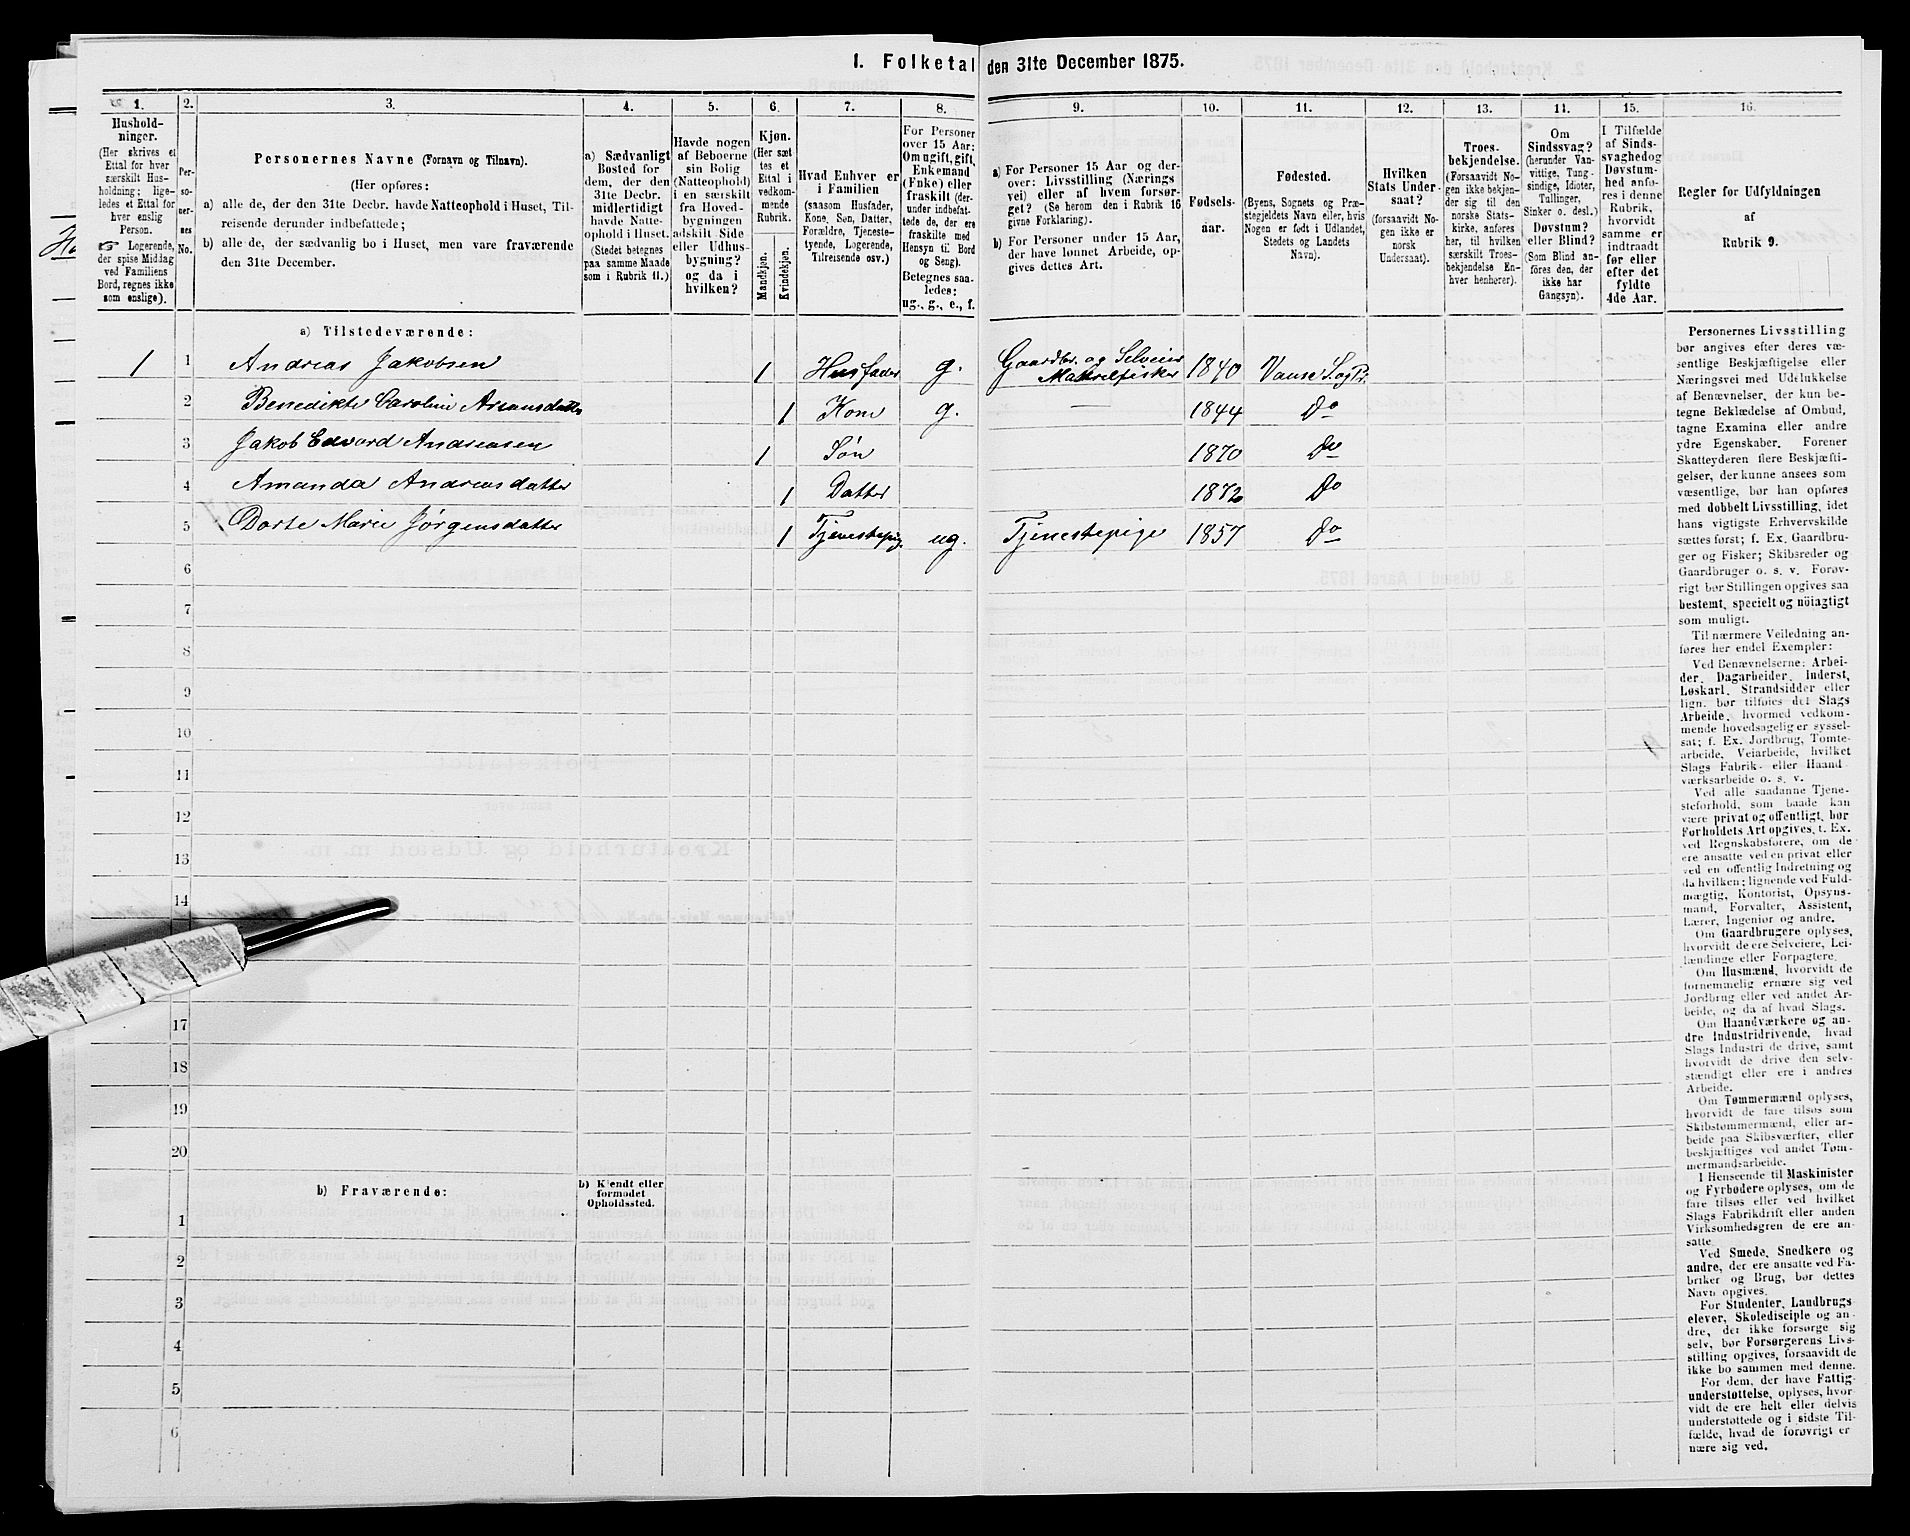 1. Folketal den 31te December 1875.
1.
2.
3.
4.
5.
6.
7.
8.
9.
10.
11.
12.
13.
14.
15.
16.
Hushold-
ninger.
(Her skrives et
Ettal for hver
særskilt Hus-
holdning; lige-
ledes et Ettal for
hver enslig
Person.
☞ Logerende,
der spise Middag
ved Familiens
Bord, regnes ikke
som enslige).
Per-
so-
ner-
nes
No.
Personernes Navne (Fornavn og Tilnavn).
(Her opføres:
a) alle de, der den 31te Decbr. havde Natteophold i Huset, Til-
reisende derunder indbefattede;
b) alle de, der sædvanlig bo i Huset, men vare fraværende
den 31te December.
a) Sædvanligt
Bosted for
dem, der den
31te Decbr.
midlertidigt
havde Natte-
ophold i Huset.
(Stedet betegnes
paa samme Maade
som i Rubrik 11.)
Havde nogen
af Beboerne
sin Bolig
(Natteophold)
i en særskilt
fra Hoved-
bygningen
adskilt Side
eller Udhus-
bygning?
og da i
hvilken?
Kjøn.
(Her sæt-
tes et
Ettal i
vedkom-
mende
Rubrik.
Mandkjøn.
Kvindekjøn.
Hvad Enhver er
i Familien
(saasom Husfader,
Kone, Søn, Datter,
Forældre, Tjeneste-
tyende, Logerende,
Tilreisende osv.)
For Personer
over 15 Aar:
Om ugift, gift,
Enkemand
(Enke) eller
fraskilt (der-
under indbefat-
tede de, der ere
fraskilte med
Hensyn til Bord
og Seng).
Betegnes saa-
ledes:
ug., g., e., f.
a) For Personer 15 Aar og der-
over: Livsstilling (Nærings-
vei) eller af hvem forsør-
get? (Se herom den i Rubrik 16
givne Forklaring).
b) For Personer under 15 Aar,
der have lønnet Arbeide, op-
gives dettes Art.
Fødsels-
aar.
Fødested.
(Byens, Sognets og Præ-
stegjeldets Navn eller, hvis
Nogen er født i Udlandet,
Stedets og Landets
Navn).
Hvilken
Stats Under-
saat?
(forsaavidt No-
gen ikke er
norsk
Undersaat).
Troes-
bekjendelse.
(Forsaavidt No-
gen ikke bekjen-
der sig til den
norske Stats-
kirke, anføres
her, til hvilken
særskilt Troes-
bekjendelse En-
hver henhører).
Om
Sindssvag?
(herunder Van-
vittige, Tung-
sindige, Idioter,
Tullinger,
Sinker o. desl.)
Døvstum?
eller Blind?
(Som Blind an-
føres den, der
ikke har
Gangsyn).
I Tilfælde
af Sinds-
svaghed og
Døvstum-
hed anfø-
res i denne
Rubrik,
hvorvidt
samme er
indtraadt
før eller
efter det
fyldte
4de Aar.
Regler for Udfyldningen
af
Rubrik 9.
a) Tilstedeværende:
1 1 Andreas Jakobsen 1 Husfader g. Gaardbr. og Selveier Makrelfisker 1840 Vanse S. og Pr.
2 Benedikte Caroline 1 Kone g. — 1844 Do
3 Jakob Edvard Andreasen 1 Søn 1870 Do
4 Amanda Andreasdatter 1 Datter 1872 Do
5 Dorte Marie Jørgensdatter 1 Tjenestepig. ug. Tjenestepige 1857 Do
6
7
8
9
10
11
12
13
14
17
18
19
20
b) Fraværende:
b) Kjendt eller
formodet
Opholdssted.
1
2
3
4
5
6
Personernes Livsstilling
bør angives efter deres væ-
sentlige Beskjæftigelse eller
Næringsvei med Udelukkelse
af Benævnelser, der kun be-
tegne Beklædelse af Ombud,
tagne Examina eller andre
ydre Egenskaber. Forener
Skatteyderen flere Beskjæfti-
gelser, der kunne ansees som
væsentlige, bør han opføres
med dobbelt Livsstilling, idet
hans vigtigste Erhvervskilde
sættes først; f. Ex. Gaardbru-
ger og Fisker; Skibsreder og
Gaardbruger o. s. v. Forøv-
rigt bør Stillingen opgives saa
bestemt, specielt og nöiagtigt
som muligt.
Til nærmere Veiledning an-
føres her endel Exempler:
Ved Benævnelserne: Arbei-
der, Dagarbeider, Inderst,
Løskarl, Strandsidder eller
lign. bør tilføies det Slags
Arbeide, hvormed vedkom-
mende hovedsagelig er syssel-
sat; f. Ex. Jordbrug, Tomte-
arbeide, Veiarbeide, hvilket
Slags Fabrik- eller Haand-
værksarbeide o. s. v.
Ved alle saadanne Tjene-
steforhold, som baade kan
være privat og offentligt, bør
Forholdets Art opgives, t. Ex.
ved Regnskabsførere, om de
ere ansatte ved en privat eller
ved en offentlig Indretning og
da hvilken; lignende ved Fuld-
mægtig, Kontorist, Opsyns-
mand, Forvalter, Assistent,
Lærer, Ingeniør og andre.
Om Gaardbrugere oplyses,
hvorvidt de ere Selveiere, Lei-
lændinge eller Forpagtere.
Om Husmænd, hvorvidt de
fornemmelig ernære sig ved
Jordbrug eller ved andet Ar-
beide, og da af hvad Slags.
Om Haandværkere og an-
dre Industridrivende, hvad
Slags Industri de drive, samt
hvorvidt de drive den selv-
stændigt eller ere i andres
Arbeide.
Om Tømmermænd oplyses,
hvorvidt de fare tilsøs som
Skibstømmermænd, eller ar-
beide paa Skibsværfter, eller
beskjæftiges ved andet Tøm-
mermandsarbeide.
I Henseende til Maskinister
og Fyrbødere oplyses, om de
fare tilsøs eller ved hvilket
Slags Fabrikdrift eller anden
Virksomhedsgren de ere an-
satte.
Ved Smede, Snedkere og
andre, der ere ansatte ved Fa-
briker og Brug, bør dettes
Navn opgives.
For Studenter, Landbrugs-
elever, Skoledisciple og an-
dre, der ikke forsørge sig
selv, bør Forsørgerens Livs-
stilling opgives, forsaavidt de
ikke bo sammen med denne.
For dem, der have Fattig-
understøttelse, oplyses, hvor-
vidt de ere helt eller delvis
understøttede og i sidste Til-
fælde, hvad de forøvrigt er-
nære sig ved.